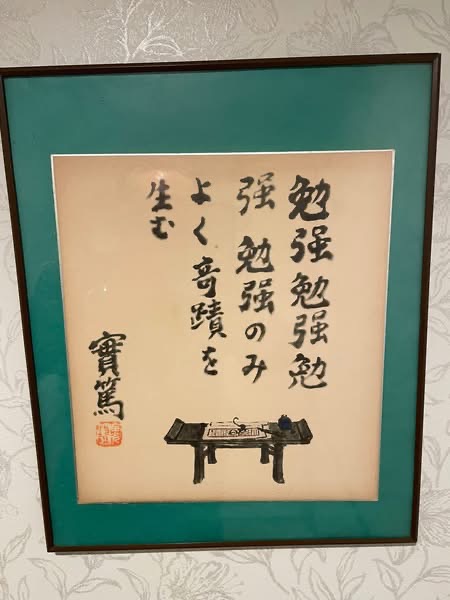 勉强勉强勉
强 勉强のみ
よく奇蹟を
生む
實篤